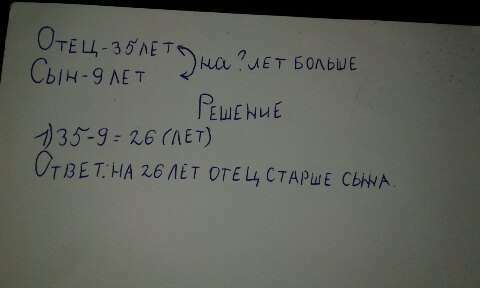 Отец - 35 лет
Сын - 9 лет на ? лет больше
Решение
1) 35-9 = 26 (лет)
Ответ: на 26 лет отец старше сына.